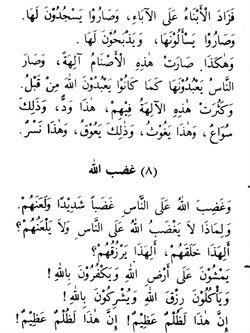 فَزَادَ الْأَبْنَاءُ عَلَى الْآبَاءِ، وَصَارُوْا يَسْجُدُوْنَ لَهَا.
وَصَارُوْا يَسْأَلُوْنَهَا، وَيَذْبَحُوْنَ لَهَا.
وَهٰكَذَا صَارَتْ هٰذِهِ الْأَصْنَامُ آلِهَةً، وَصَارَ
النَّاسُ يَعْبُدُوْنَهَا كَمَا كَانُوْا يَعْبُدُوْنَ اللهَ مِنْ قَبْلُ.
وَكَثُرَتْ هٰذِهِ الْآلِهَةُ فِيْهِمْ، هٰذَا وَدٌّ، وَذٰلِكَ
سُوَاعٌ، وَهٰذَا يَغُوْثُ، وَذٰلِكَ يَعُوْقُ، وَهٰذَا نَسْرٌ.
(٨) غضب الله
وَغَضِبَ اللهُ عَلَى النَّاسِ غَضَباً شَدِيْدًا وَلَعَنَهُمْ.
وَلِمَاذَا لاَ يَغْضَبُ اللهُ عَلَى النَّاسِ وَلاَ يَلْعَنُهُمْ؟
أَلِهٰذَا خَلَقَهُمْ، أَلِهٰذَا يَرْزُقُهُمْ؟
يَمْشُوْنَ عَلَى أَرْضِ اللهِ وَيَكْفُرُوْنَ بِاللهِ!
وَيَأْكُلُوْنَ رِزْقَ اللهِ وَيُشْرِكُوْنَ بِاللهِ!
إِنَّ هٰذَا لَظُلْمٌ عَظِيْمٌ! إِنَّ هٰذَا لَظُلْمٌ عَظِيْمٌ!